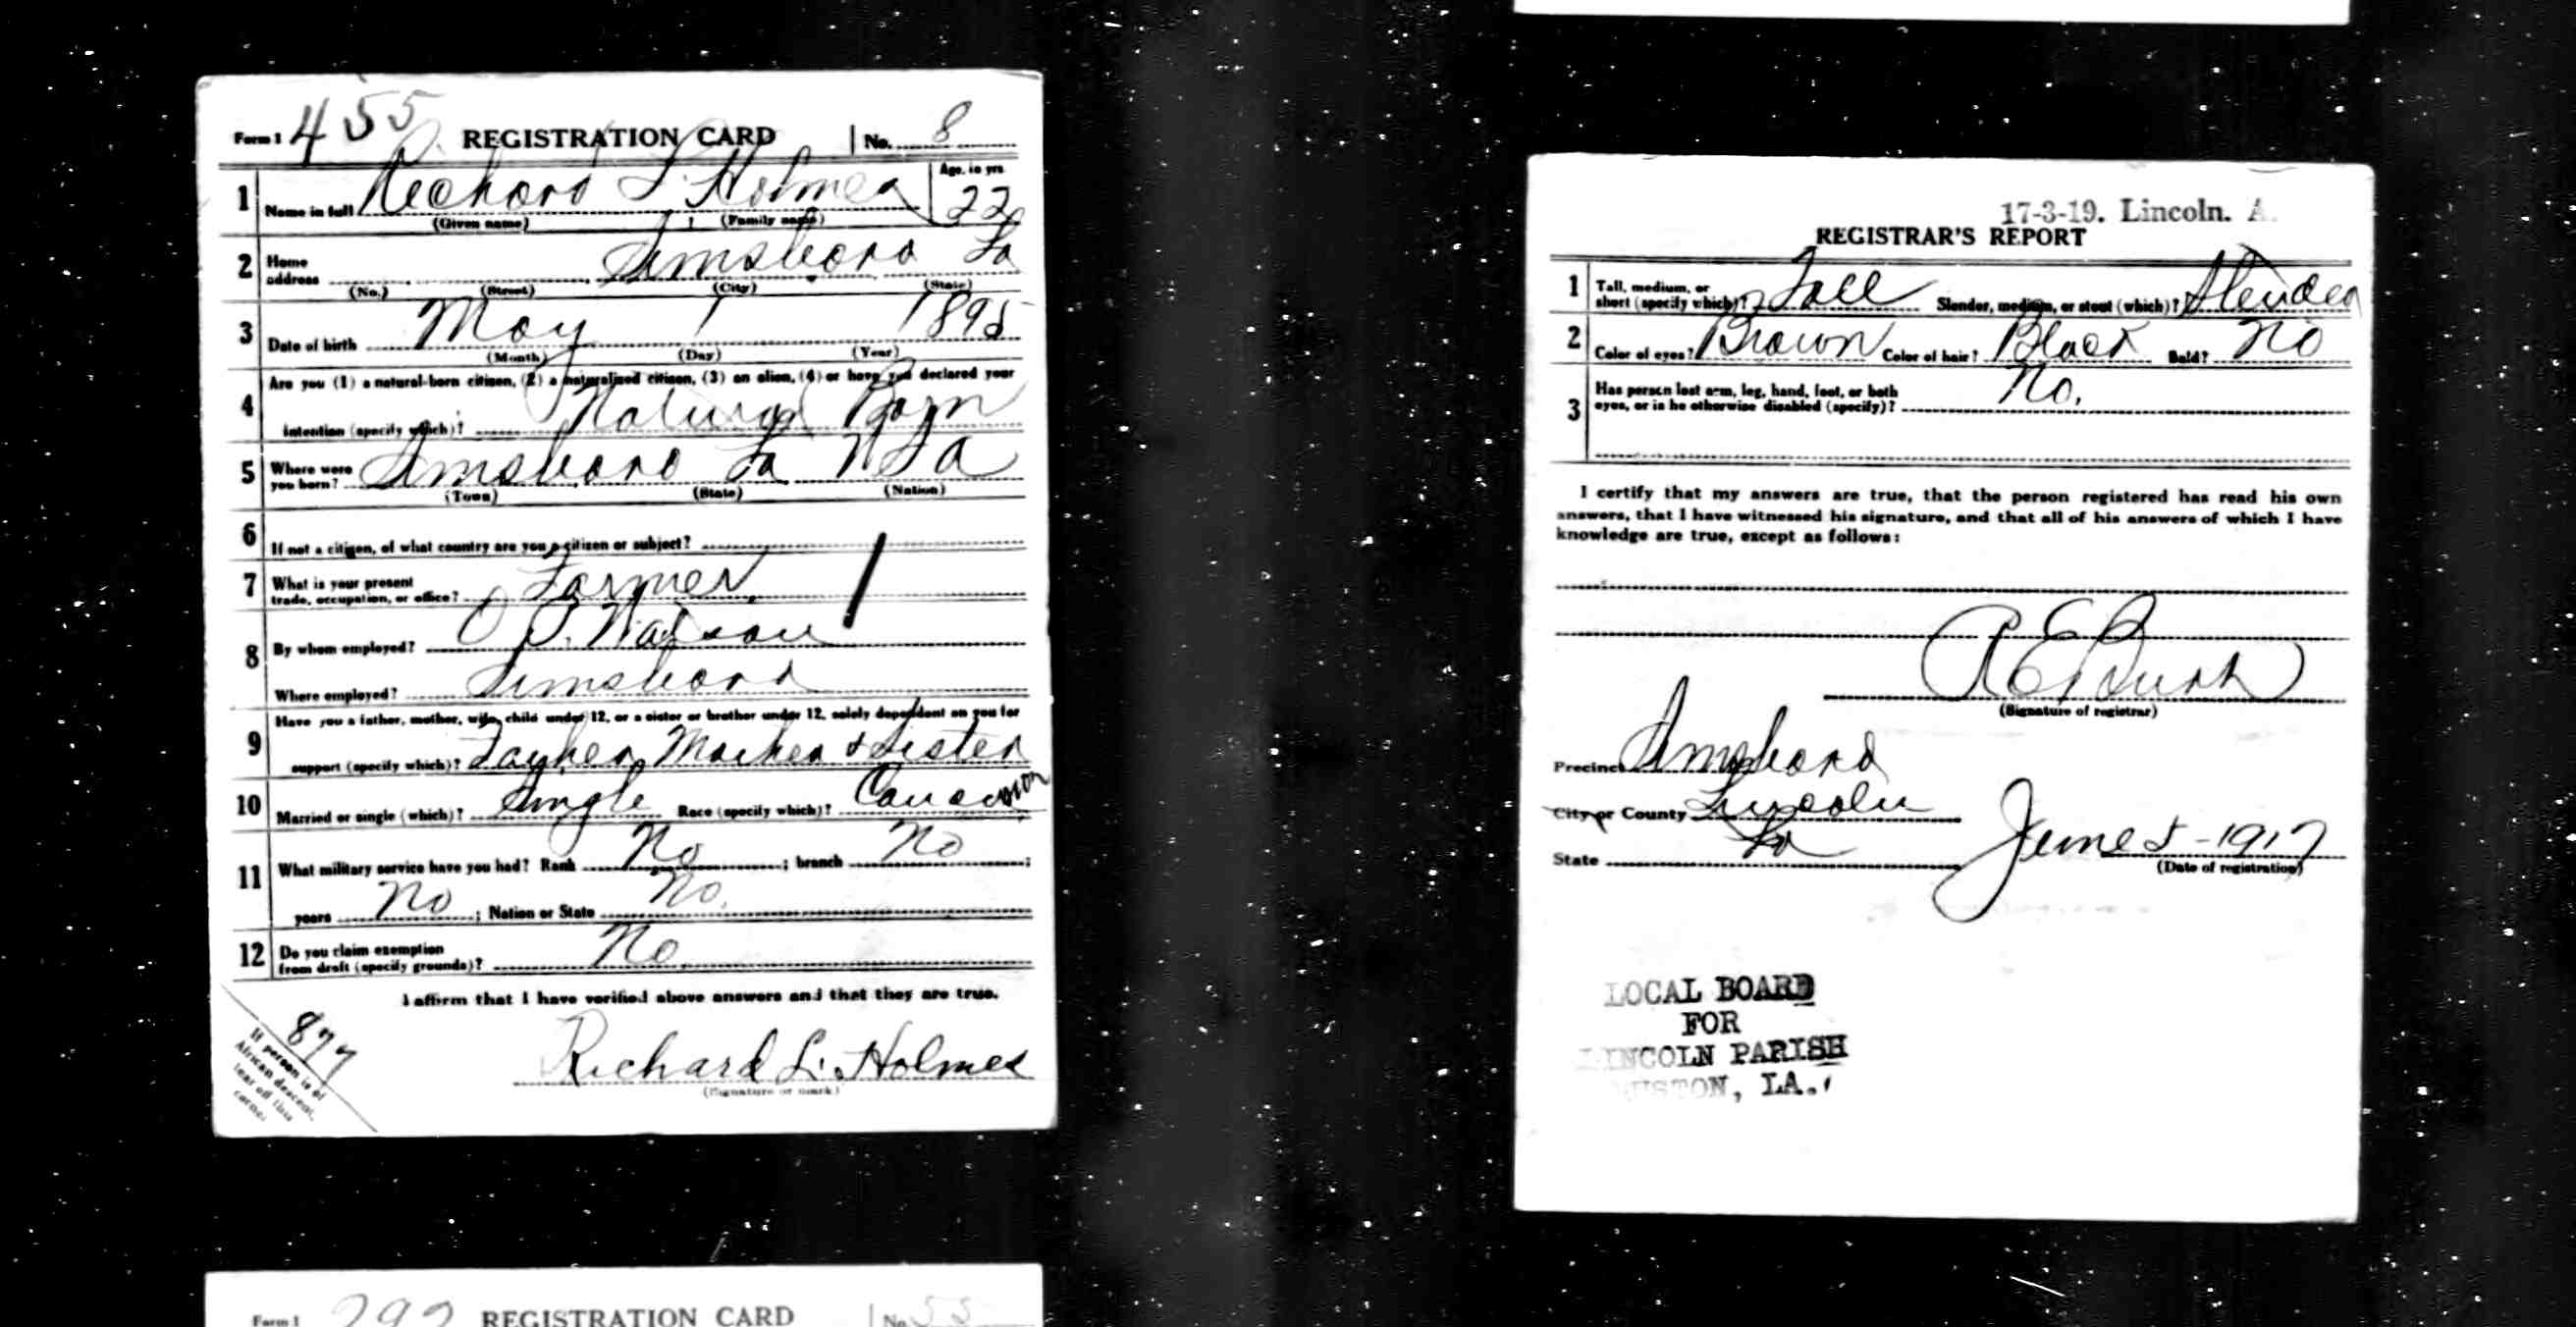 Form 1 455 REGISTRATION CARD No. 8
1 Name in full Richard L. Holmes Age, in yrs 22
(Given name) (Family name)
2 Home address Simsboro La
(No.) (Street) (City) (State)
3 Date of birth May 1 1895
(Month) (Day) (Year)
4 Are you (1) a natural-born citizen, (2) a naturalized citizen, (3) an alien, (4) or have you declared your
intention (specify which)? Natural Born
5 Where were you born? Simsboro La USA
(Town) (State) (Nation)
6 If not a citizen, of what country are you a citizen or subject?
7 What is your present
trade, occupation, or office? Farmer
8 By whom employed?
Where employed? Simsboro
9 Have you a father, mother, wife, child under 12, or a sister or brother under 12, solely dependent on you for
support (specify which)? Father Mother & Sister
10 Married or single (which)? Single Race (specify which)? Caucasian
11 What military service have you had? Rank No ; branch No ;
years No ; Nation or State No.
12 Do you claim exemption
from draft (specify grounds)? No
I affirm that I have verified above answers and that they are true.
Richard L. Holmes
(Signature or mark)
877
If person is of
African descent,
tear off this
corner
17-3-19. Lincoln. A.
REGISTRAR'S REPORT
1 Tall, medium, or
short (specify which)? Tall Slender, medium, or stout (which)? Slender
2 Color of eyes? Brown Color of hair? Black Bald? No
3 Has person lost arm, leg, hand, foot, or both
eyes, or is he otherwise disabled (specify)? No.
I certify that my answers are true, that the person registered has read his own
answers, that I have witnessed his signature, and that all of his answers of which I have
knowledge are true, except as follows:
(Signature of registrar)
Precinct Simsboro
City or County Lincoln
State La June 5-1917
(Date of registration)
LOCAL BOARD
FOR
LINCOLN PARISH
RUSTON, LA.
Form 1 292 REGISTRATION CARD No. 55